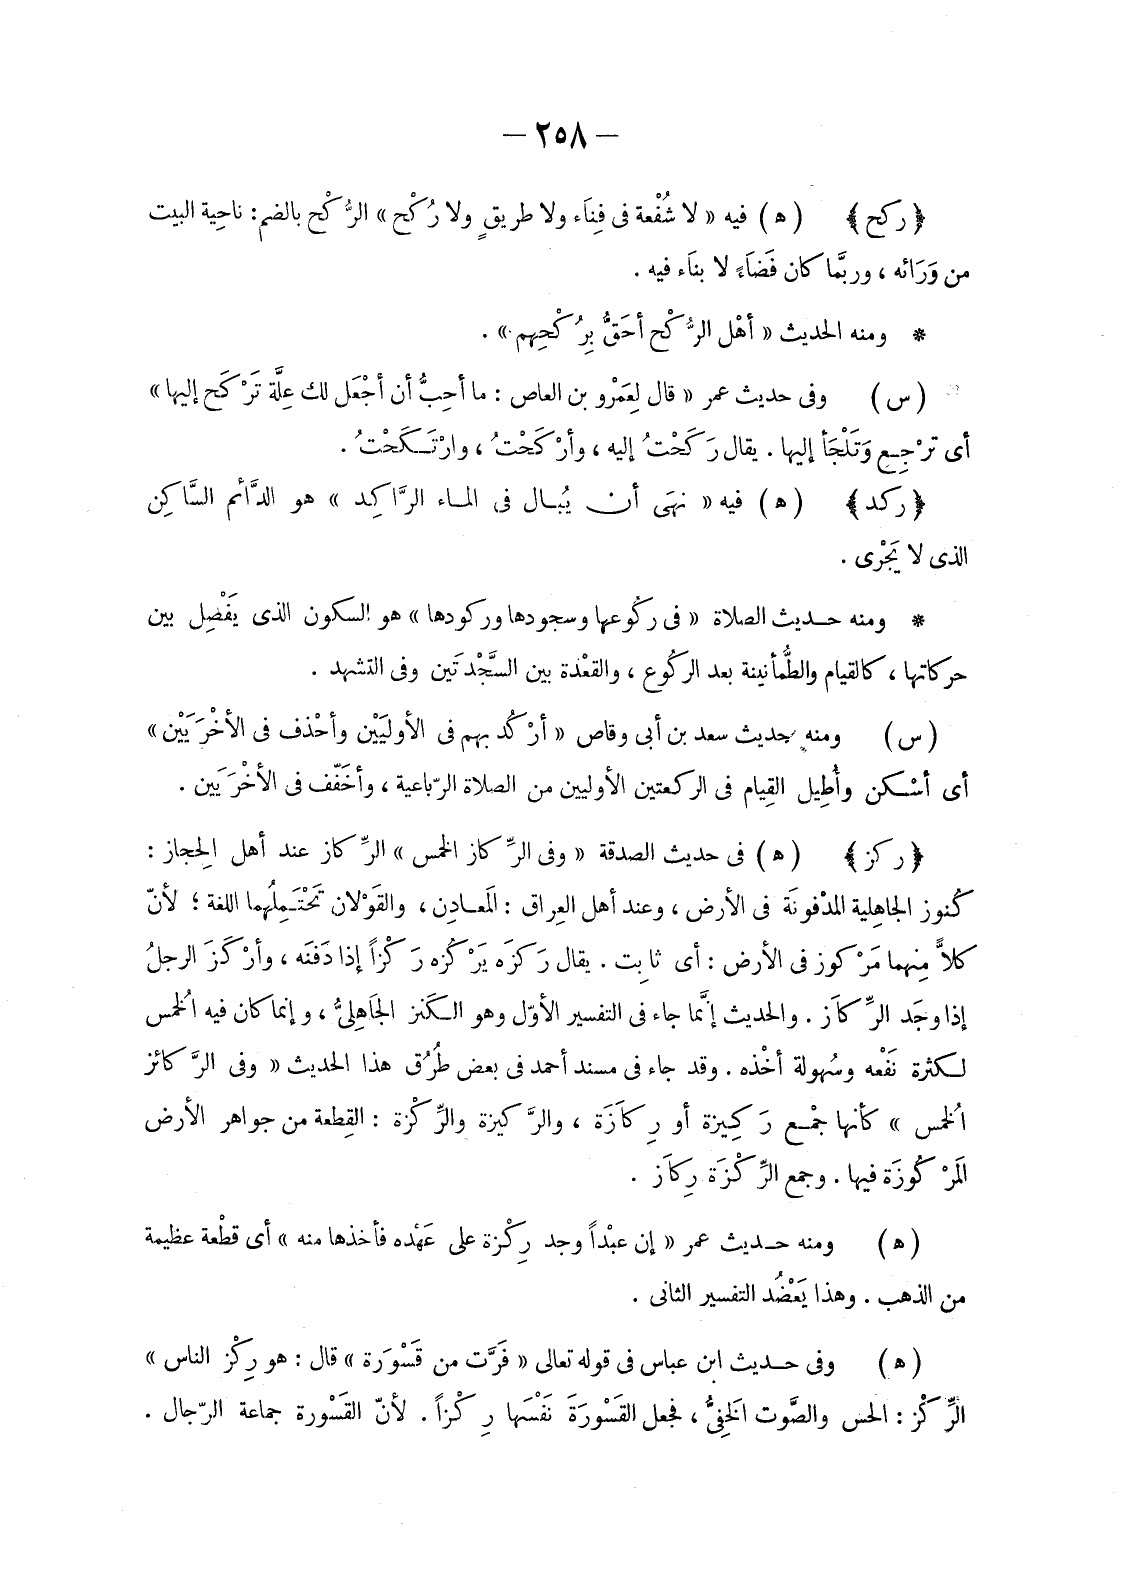 — ٢٥٨ —
﴿ركح﴾ (ه) فيه « لا شُفْعة فى فِنَاء ولا طريقٍ ولا رُكْح » الرُّكْح بالضم: ناحِية البيت
من وَرَائه ، وربَّما كان فَضَاءً لا بنَاء فيه .
* ومنه الحديث « أهْل الرُّكْح أحَقُّ بِرُكْحِهِم » .
(س) وفى حديث عمر « قال لِعَمْرو بن العاص : ما أحِبُّ أن أجْعَل لك عِلَّة تَرْكَح إليها »
أى ترْجِع وَتَلْجَأ إليها . يقال رَكَحْتُ إليه ، وأرْكَحْتُ ، وارْتَكَحْتُ .
﴿ركد﴾ (ه) فيه « نهَى أن يُبال فى الماء الرَّاكِد » هو الدَّائم السَّاكِن
الذى لا يَجْرى .
* ومنه حديث الصلاة « فى ركُوعها وسجودها وركودها » هو السكون الذى يَفْصِل بين
حركاتها ، كالقيام والطُّمأنينة بعد الركُوع ، والقعْدة بين السَّجْدتَين وفى التشهد .
(س) ومنه حديث سعد بن أبى وقاص « أرْكُد بهم فى الأوليَيْن وأحْذف فى الأخْرَيَيْن »
أى أسْكن وأُطِيل القِيام فى الركعتين الأوليين من الصلاة الرّباعية ، وأخَفّف فى الأخْرَيَين .
﴿ركز﴾ (ه) فى حديث الصدقة « وفى الرِّكاز الخمس » الرِّكاز عند أهل الِحجاز :
كُنوز الجاهِلية المدْفونَة فى الأرض ، وعند أهل العِراق : المَعادِن ، والقَوْلان تَحْتَمِلُهما اللغة ؛ لأنّ
كلاًّ مِنهما مَرْكوز فى الأرض : أى ثابت . يقال رَكزَه يَرْكُزه رَكْزاً إذا دَفنَه ، وأرْكَزَ الرجلُ
إذا وجَد الرِّكاَز . والحديث إنَّما جاء فى التفسير الأوّل وهو الكَنز الجَاهِلِيُّ ، وإنما كان فيه الُخمس
لكثرة نَفْعه وسُهولة أخْذه . وقد جاء فى مسند أحمد فى بعض طُرُق هذا الحديث « وفى الرَّكائز
الُخمس » كأنها جْمع رَكِيزة أو رِكاَزَة ، والرَّكيزة والرِّكْزة : القِطعة من جواهر الأرض
المَرْكُوزَة فيها . وجمع الرِّكْزَة رِكاَز .
(ه) ومنه حديث عمر « إن عبْداً وجد رِكْزة على عَهْده فأخذها منه » أى قطْعة عظيمة
من الذهب . وهذا يَعْضُد التفسير الثانى .
(ه) وفى حديث ابن عباس فى قوله تعالى « فَرَّت من قَسْوَرة » قال : هو رِكْز الناس »
الرِّكْز : الحس والصَّوت الَخِفىُّ ، فجعل القَسْورَةَ نَفْسَها رِكْزاً . لأنّ القَسْورة جماعة الرّجال .